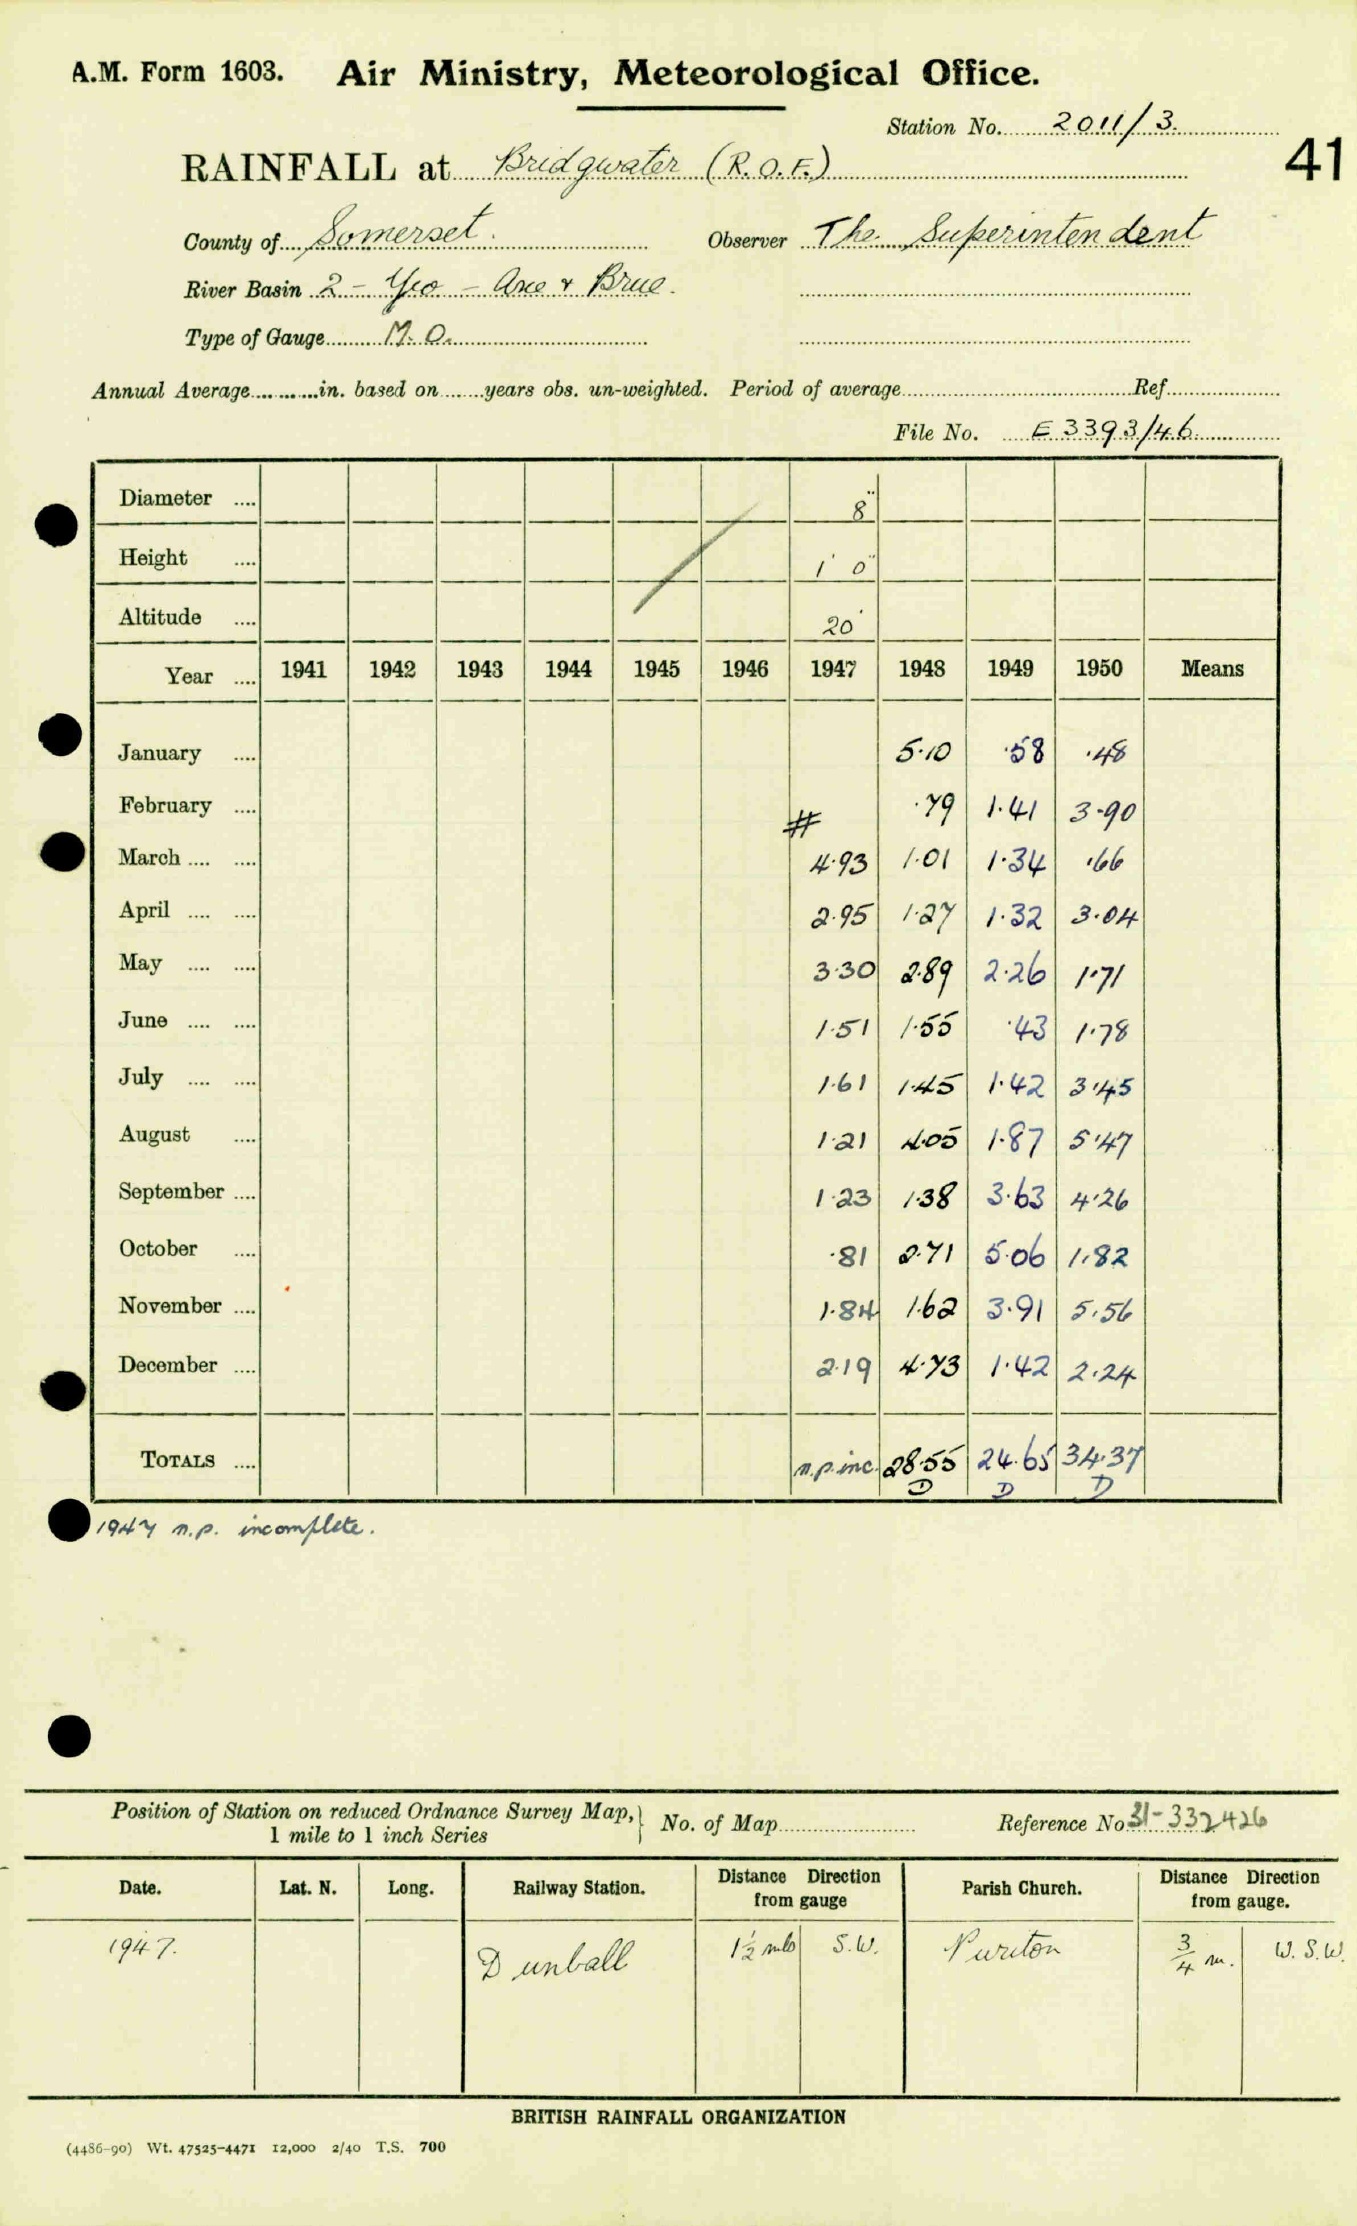 A.M. Form 1603. Air Ministry, Meteorological Office.
Station No. 2011/3.
41
RAINFALL at Bridgwater (R.O.F.)
County of Somerset. Observer The Superintendent
River Basin 2 - Yeo - Axe & Brue.
Type of Gauge M.O.
Annual Average in. based on years obs. un-weighted. Period of average Ref.
File No. E 3393/46.
Diameter 8"
Height 1' 0"
Altitude 20'
Year 1941 1942 1943 1944 1945 1946 1947 1948 1949 1950 Means
January 5.10 .58 .48
February # .79 1.41 3.90
March 4.93 1.01 1.34 .66
April 2.95 1.27 1.32 3.04
May 3.30 2.89 2.26 1.71
June 1.51 1.55 .43 1.78
July 1.61 1.45 1.42 3.45
August 1.21 4.05 1.87 5.47
September 1.23 1.38 3.63 4.26
October .81 2.71 5.06 1.82
November 1.84 1.62 3.91 5.56
December 2.19 4.73 1.42 2.24
TOTALS n.p. inc. 28.55 24.65 34.37
D D D
1947 n.p. incomplete.
Position of Station on reduced Ordnance Survey Map, } No. of Map Reference No 31-332426
1 mile to 1 inch Series
Date. Lat. N. Long. Railway Station. Distance Direction from gauge Parish Church. Distance Direction from gauge.
1947. Dunball 1½ mls S.W. Puriton ¾ m. W.S.W.
BRITISH RAINFALL ORGANIZATION
(4486-90) Wt. 47525-4471 12,000 2/40 T.S. 700